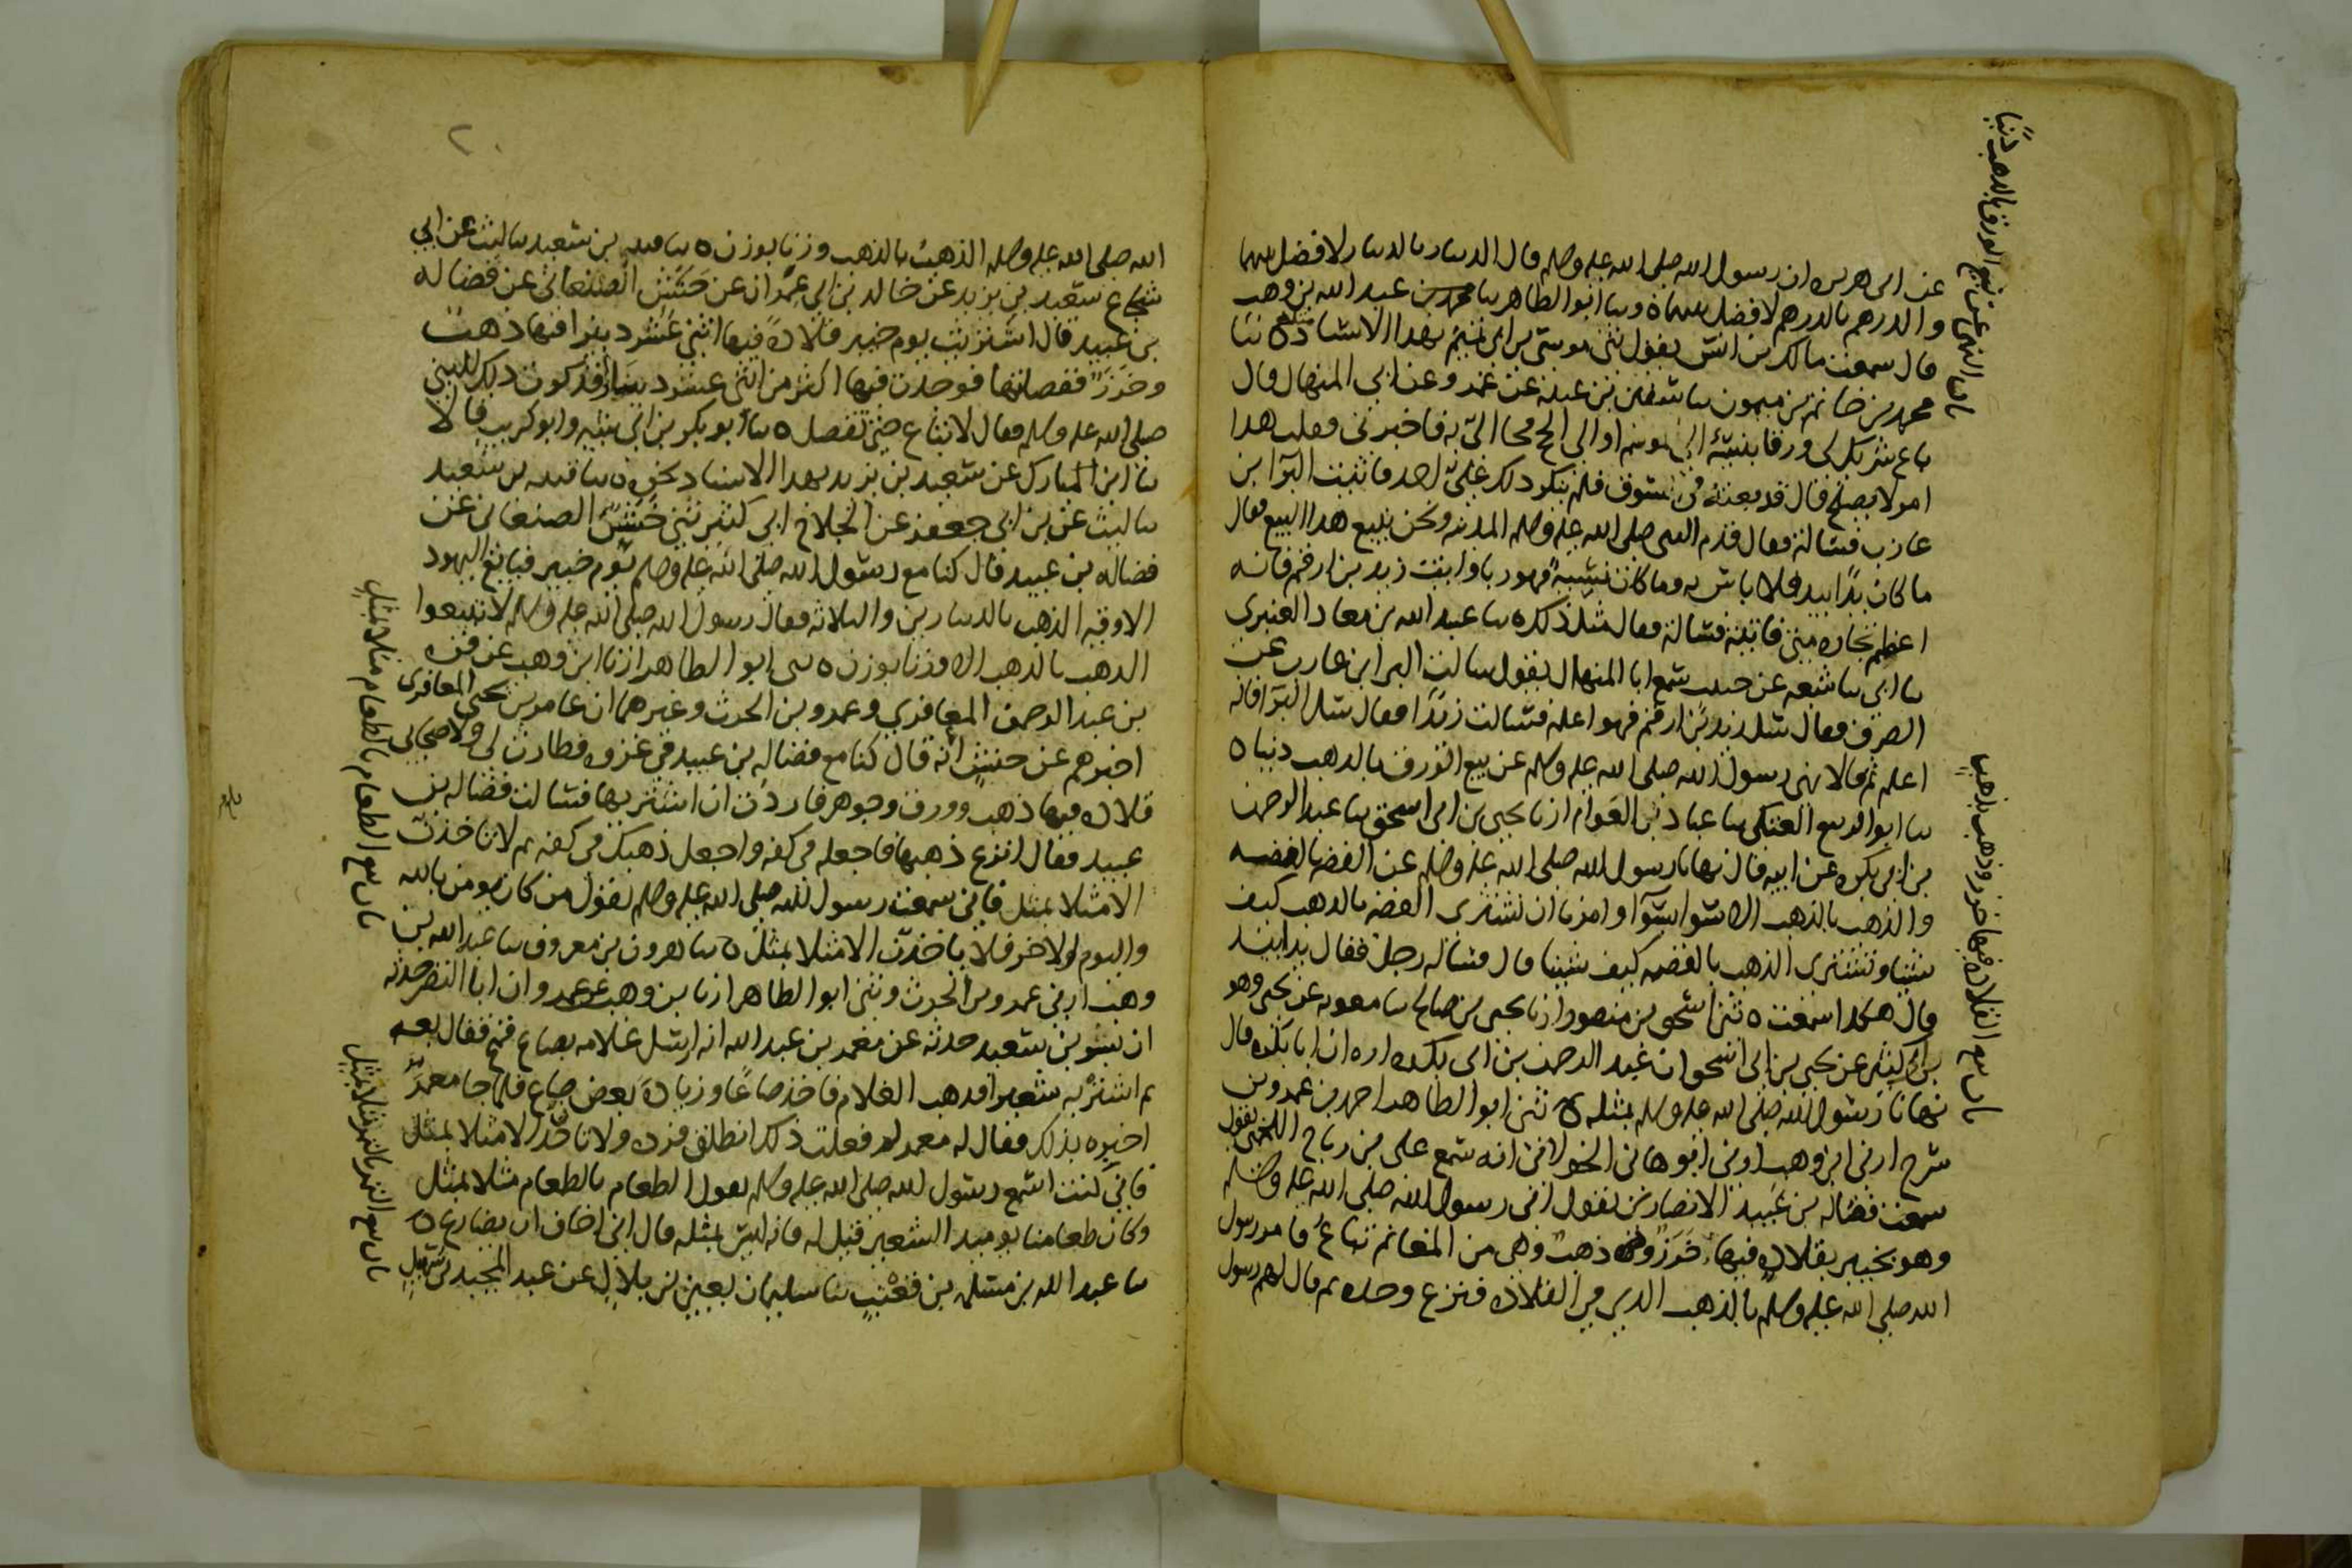 عن ابى هريره ان رسول الله صلى الله عليه وسلم قال الدينار بالدينار لا فضل بينهما
والدرهم بالدرهم لا فضل بينهما ه وثنا ابو الطاهر ثنا عبد الله بن وهب
قال سمعت مالك بن انس يقول ثنى موسى بن ابى تميم بهذا الاسناد مثله ه ثنا
محمد بن حاتم بن ميمون ثنا سفين بن عيينه عن عمرو عن ابي المنهال قال
باع شريك لى ورقا بنسيئة الى الموسم او الى الحج فجا الىّ فاخبرنى فقلت هذا
امر لا يصلح قال قد بعته فى السوق فلم ينكر ذلك علىّ احد فاتيت البرآ بن
عازب فسالته فقال قدم النبى صلى الله عليه وسلم المدينه ونحن نبيع هذا البيع فقال
ما كان يدًا بيد فلا باس به وما كان نسيئةً فهو ربا وايت زيد بن ارقم فانه
اعظم تجاره منى فاتيته فسالته فقال مثل ذلك ه ثنا عبيد الله بن معاذ العنبرى
ثنا ابي ثنا شعبه عن حبيب سمع ابا المنهال يقول سالت البرا بن عازب عن
الصرف فقال سل زيد بن ارقم فهو اعلم فسالت زيدًا فقال سل البرآ فانه
اعلم ثم قالا نهى رسول الله صلى الله عليه وسلم عن بيع الورق بالذهب دينا ه
ثنا ابو الربيع العتكى ثنا عباد بن العوام انا يحيى بن ابى اسحق ثنا عبد الرحمن
بن ابى بكره عن ابيه قال نهانا رسول الله صلى الله عليه وسلم عن الفضه بالفضه
والذهب بالذهب الا سوا بسوآ وامرنا ان نشترى الفضه بالذهب كيف
شينا ونشترى الذهب بالفضه كيف شينا قال فساله رجل فقال يدا بيد
قال هكذا سمعت ه ثنى اسحق بن منصور انا يحيى بن صالح ثنا معويه عن يحيى وهو
بن ابى كثير عن يحيى بن ابى اسحق ان عبد الرحمن بن ابى بكره اخبره ان ابا بكره قال
نهانا رسول الله صلى الله عليه وسلم بمثله ه ثنى ابو الطاهر احمد بن عمرو بن
سرح انا ابن وهب اخبرنى ابو هانى الخولانى انه سمع على بن رباح اللخمى يقول
سمعت فضاله بن عبيد الانصارى يقول اتى رسول الله صلى الله عليه وسلم
وهو بخيبر بقلاده فيها خرز وذهب وهى من المغانم تباع فامر رسول
الله صلى الله عليه وسلم بالذهب الذى فى القلاده فنزع وحده ثم قال لهم رسول
باب النهى عن بيع الورق بالذهب دينا
باب بيع القلاده فيها خرز وذهب بذهب
٢٠
الله صلى الله عليه وسلم الذهب بالذهب وزنا بوزن ه ثنا قتيبه بن سعيد ثنا ليث عن ابي
شجاع سعيد بن يزيد عن خالد بن ابي عمران عن حنش الصنعانى عن فضاله
بن عبيد قال اشتريت يوم خيبر قلادةً فيها اثنى عشر دينرا فيها ذهب
وخرز ففصلتها فوجدت فيها اكثر من اثنى عشر دينارا فذكرت ذلك للنبى
صلى الله عليه وسلم فقال لا تباع حتى تفصل ه ثنا ابو بكر بن ابي شيبه وابو كريب قالا
ثنا ابن المبارك عن سعيد بن يزيد بهذا الاسناد نحوه ه ثنا قتيبه بن سعيد
ثنا ليث عن بن ابي جعفر عن الجلاح ابي كثير ثنى حنش الصنعانى عن
فضاله بن عبيد قال كنا مع رسول الله صلى الله عليه وسلم يوم خيبر نبايع اليهود
الاوقيه الذهب بالدينارين والثلاثه فقال رسول الله صلى الله عليه وسلم لا تبيعوا
الذهب بالذهب الا وزنا بوزن ه ثنى ابو الطاهر انا ابن وهب عن قره
بن عبد الرحمن المعافري وعمرو بن الحرث وغيرهما ان عامر بن يحيى المعافرى
اخبرهم عن حنش انه قال كنا مع فضاله بن عبيد فى غزوه فطارت لى ولاصحابى
قلاده فيها ذهب وورق وجوهر فاردت ان اشتريها فسالت فضاله بن
عبيد فقال انزع ذهبها فاجعله فى كفه واجعل ذهبك فى كفه ثم لا تاخذن
الا مثلا بمثل فانى سمعت رسول الله صلى الله عليه وسلم يقول من كان يومن بالله
واليوم الاخر فلا ياخذن الا مثلا بمثل ه ثنا هرون بن معروف ثنا عبد الله بن
وهب اخبرنى عمرو بن الحرث وثنى ابو الطاهر انا بن وهب عن عمرو ان ابا النضر حدثه
ان بسر بن سعيد حدثه عن معمر بن عبد الله انه ارسل غلامه بصاع قمح فقال بعه
ثم اشتر به شعيرا فذهب الغلام فاخذ صاعًا وزياده بعض صاع فلما جا معمرً
اخبره بذلك فقال له معمر لم فعلت ذلك انطلق فرده ولا تاخذن الا مثلا بمثل
فاني كنت اسمع رسول الله صلى الله عليه وسلم يقول الطعام بالطعام مثلا بمثل
وكان طعامنا يوميذ الشعير قيل له فانه ليس بمثله قال انى اخاف ان يضارع ه
ثنا عبد الله بن مسلمه بن قعنب ثنا سليمان يعنى بن بلال عن عبد المجيد بن سهيل
باب بيع الطعام بالطعام مثلا بمثل
باب بيع التمر بالتمر مثلا بمثل